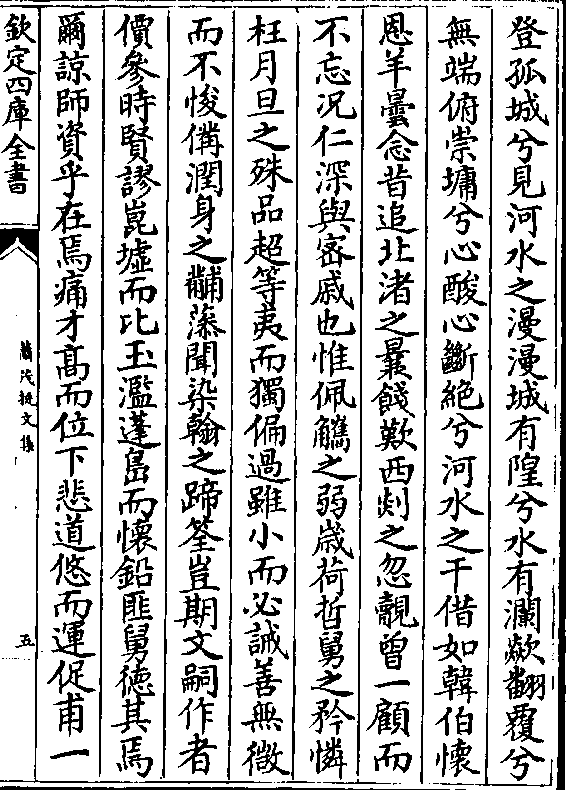 登孤城兮見河水之漫漫城有隍兮水有瀾歘翻覆兮
無端俯崇墉兮心酸心斷絶兮河水之干借如韓伯懐
恩羊曇念昔追北渚之曩餞歎西剡之忽覿曽一顧而
不忘況仁深與宻戚也惟佩觿之弱嵗荷哲舅之矜憐
枉月旦之殊品超等夷而獨偏過雖小而必誡善無微
而不悛僃潤身之黼藻聞染翰之蹄筌豈期文嗣作者
價參時賢謬崑墟而比玉濫蓬島而懐鉛匪舅徳其焉
爾諒師資乎在焉痛才髙而位下悲道悠而運促甫一
欽定四庫全書
蕭茂挺文集
五